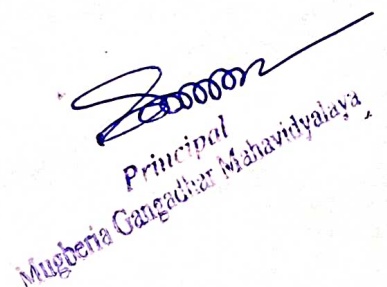 Principal
Mugberia Gangadhar Mahavidyalaya